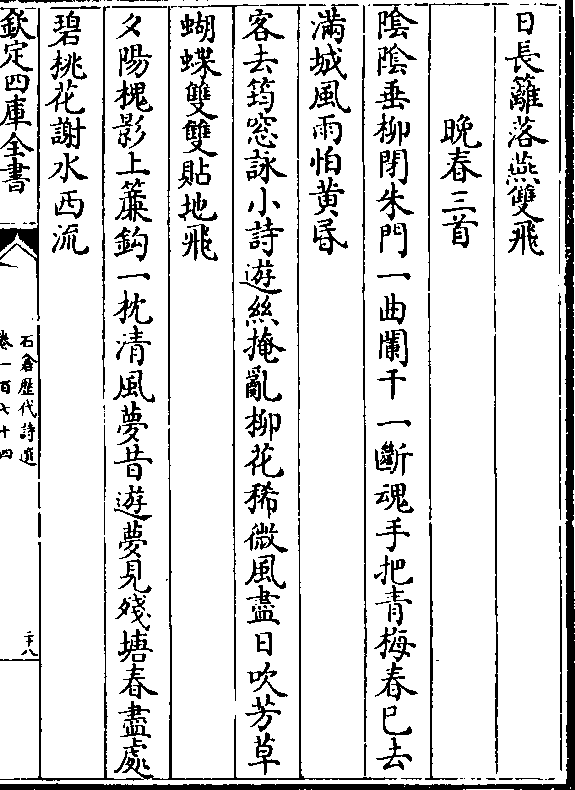 日長籬落燕雙飛
晚春三首
陰陰垂柳閉朱門一曲闌干一斷魂手把青梅春已去
滿城風雨怕黄昏
客去筠窓詠小詩遊絲掩亂柳花稀微風盡日吹芳草
蝴蝶雙雙貼地飛
夕陽槐影上簾鈎一枕清風夢昔遊夢見殘塘春盡處
碧桃花謝水西流
欽定四庫全書
石倉歷代詩選
卷一百七十四
二十八